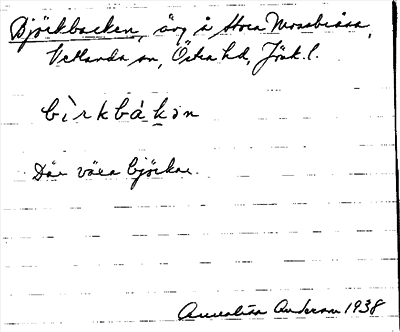 Björkbacken, äng å Stora Mossbiåsa,
Vetlanda sn, Östra hd, Jönk. l.
bìrkbákən
Där växa björkar.
Annalisa Anderson 1938